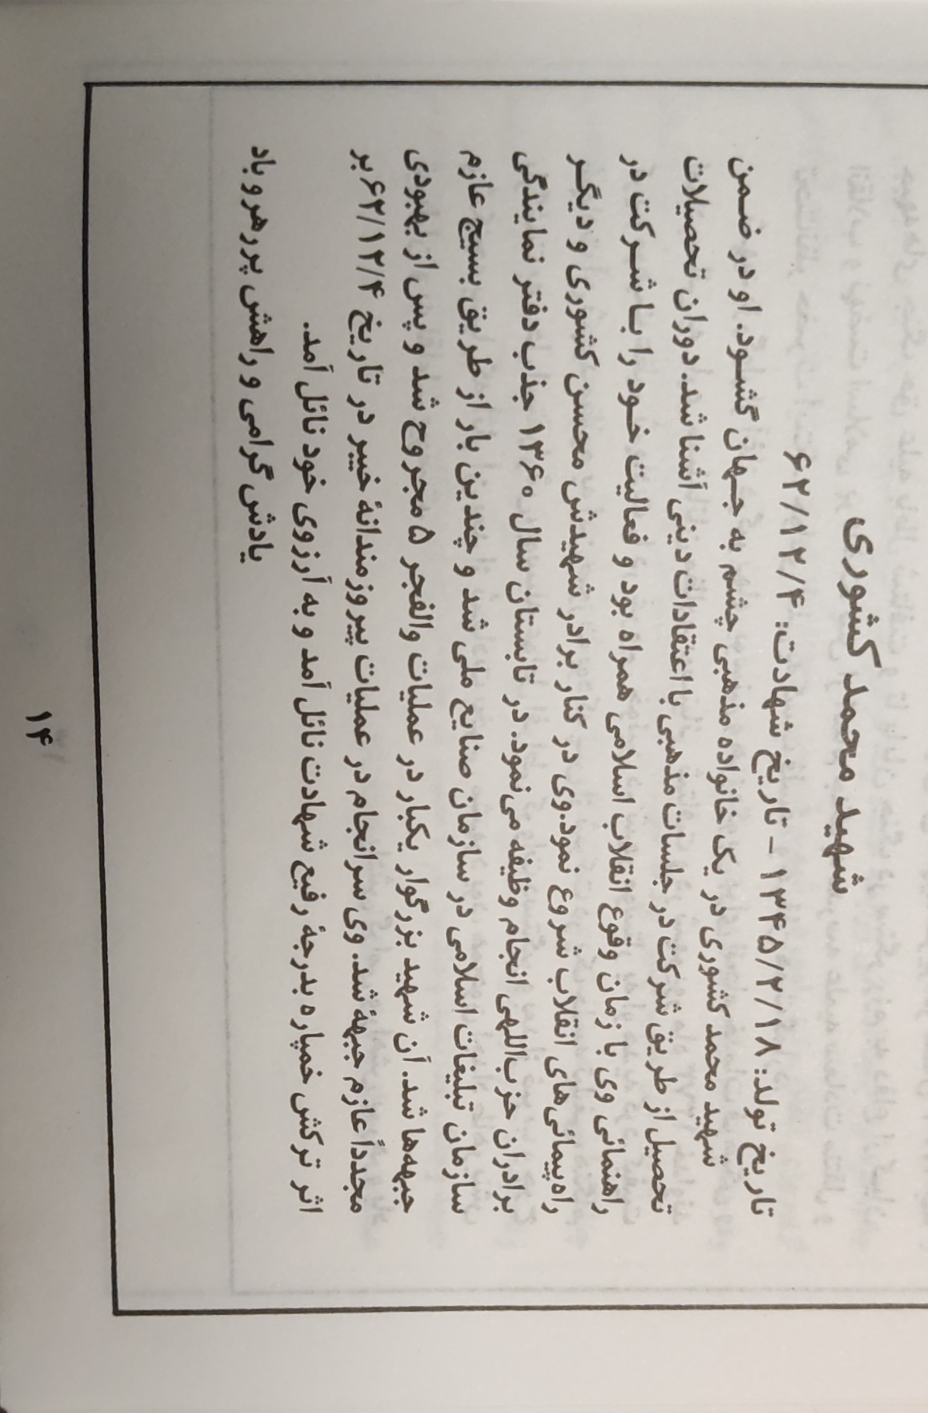 شهید محمد کشوری
تاریخ تولد: ۱۳۴۵/۲/۱۸ - تاریخ شهادت: ۶۲/۱۲/۴
شهید محمد کشوری در یک خانواده مذهبی چشم به جهان گشود. او در ضمن
تحصیل از طریق شرکت در جلسات مذهبی با اعتقادات دینی آشنا شد. دوران تحصیلات
راهنمائی وی با زمان وقوع انقلاب اسلامی همراه بود و فعالیت خود را با شرکت در
راه‌پیمائی‌های انقلاب شروع نمود. وی در کنار برادر شهیدش محسن کشوری و دیگر
برادران حزب‌اللهی انجام وظیفه می‌نمود. در تابستان سال ۱۳۶۰ جذب دفتر نمایندگی
سازمان تبلیغات اسلامی در سازمان صنایع ملی شد و چندین بار از طریق بسیج عازم
جبهه‌ها شد. آن شهید بزرگوار یکبار در عملیات والفجر ۵ مجروح شد و پس از بهبودی
مجدداً عازم جبهه شد. وی سرانجام در عملیات پیروزمندانهٔ خیبر در تاریخ ۶۲/۱۲/۴ بر
اثر ترکش خمپاره بدرجهٔ رفیع شهادت نائل آمد و به آرزوی خود نائل آمد.
یادش گرامی و راهش پررهرو باد
۱۴